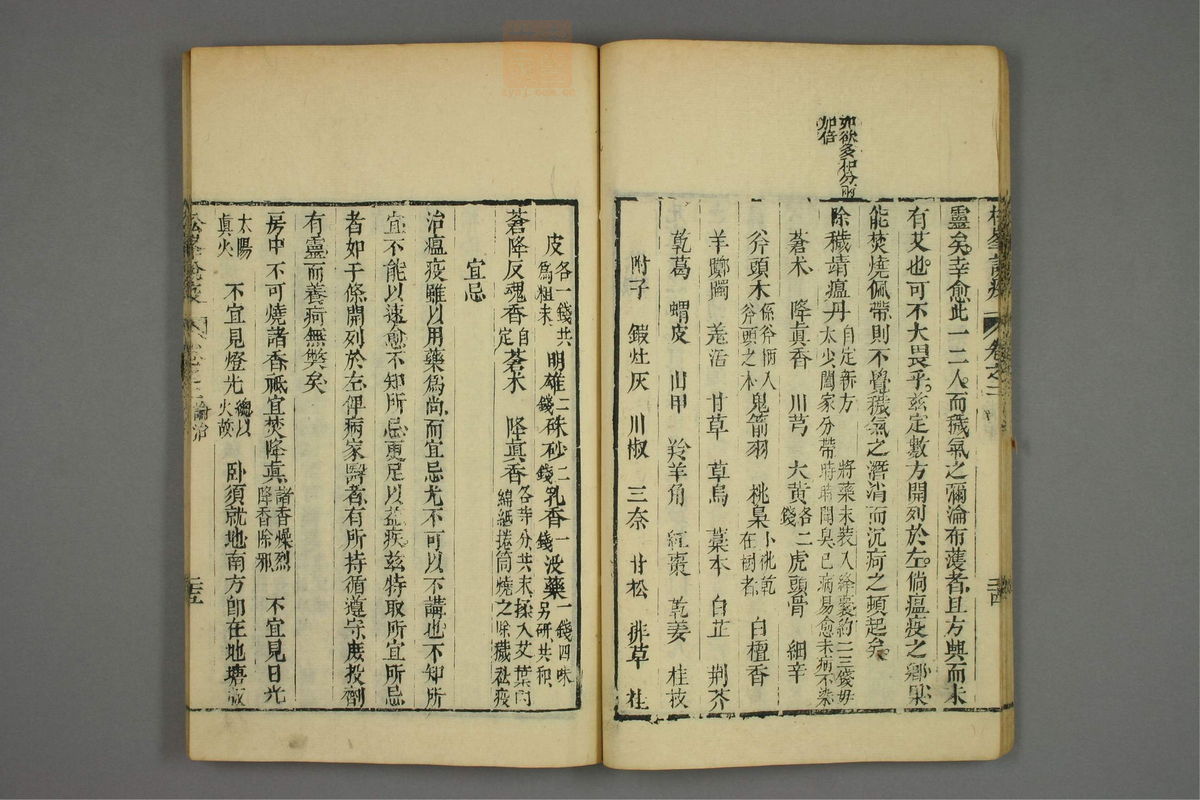 如欲多加分兩
加倍
靈矣幸愈此一二人而穢氣之彌淪布濩者且方興而未
有艾也可不大畏乎茲定數方開列於左倘瘟疫之鄉果
能焚燒佩帶則不覺穢氣之潛消而沉疴之頓起矣
除穢靖瘟丹自定新方 將藥末裝入絳囊約二三錢毋
太少闔家分帶時時聞臭已病易愈未病不染
蒼朮 降眞香 川芎 大黃各二錢虎頭骨 細辛
斧頭木係斧柄入斧頭之木鬼箭羽 桃梟小桃乾在樹者 白檀香
羊躑躅 羗活 甘草 草烏 藁本 白芷 荆芥
乾葛 蝟皮 山甲 羚羊角 紅棗 乾姜 桂枝
附子 鍜灶灰 川椒 三奈 甘松 排草 桂
松峯說疫 卷之二 二十四
皮各一錢共爲粗末 明雄二錢硃砂二錢乳香一錢沒藥一錢四味另研共和
蒼降反魂香自定蒼朮 降眞香各等分共末揉入艾葉內綿紙捲筒燒之除穢祛疫
宜忌
治瘟疫雖以用藥爲尚而宜忌尤不可以不講也不知所
宜不能以速愈不知所忌更足以益疾茲特取所宜所忌
者如干條開列於左俾病家醫者有所持循遵守庶投劑
有靈而養疴無獘矣
房中不可燒諸香祇宜焚降眞諸香燥烈降香除邪 不宜見日光
太陽眞火 不宜見燈光總以火故 卧須就地南方卽在地塘板
松峯說疫 卷之二論治 二十五